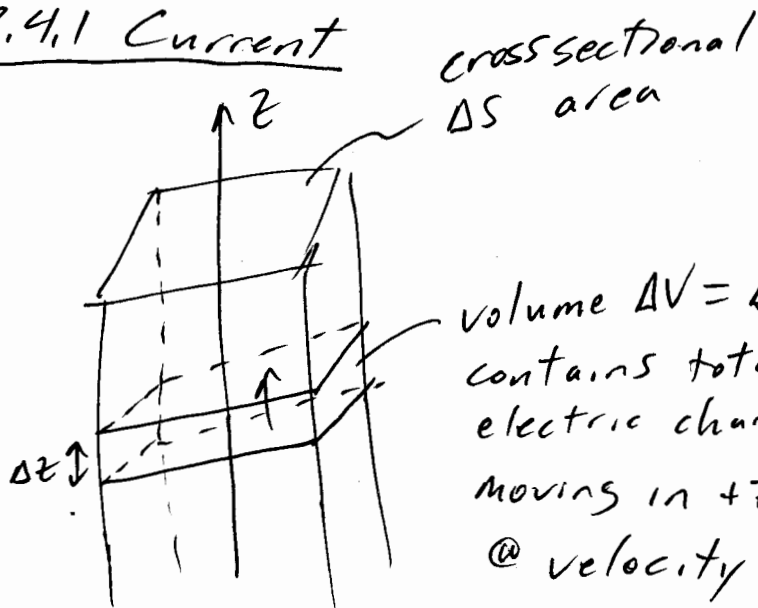 .4.1 Current
crosssectional
ΔS area
z
volume ΔV =
contains
electric
moving in +
@ velocity
Δz